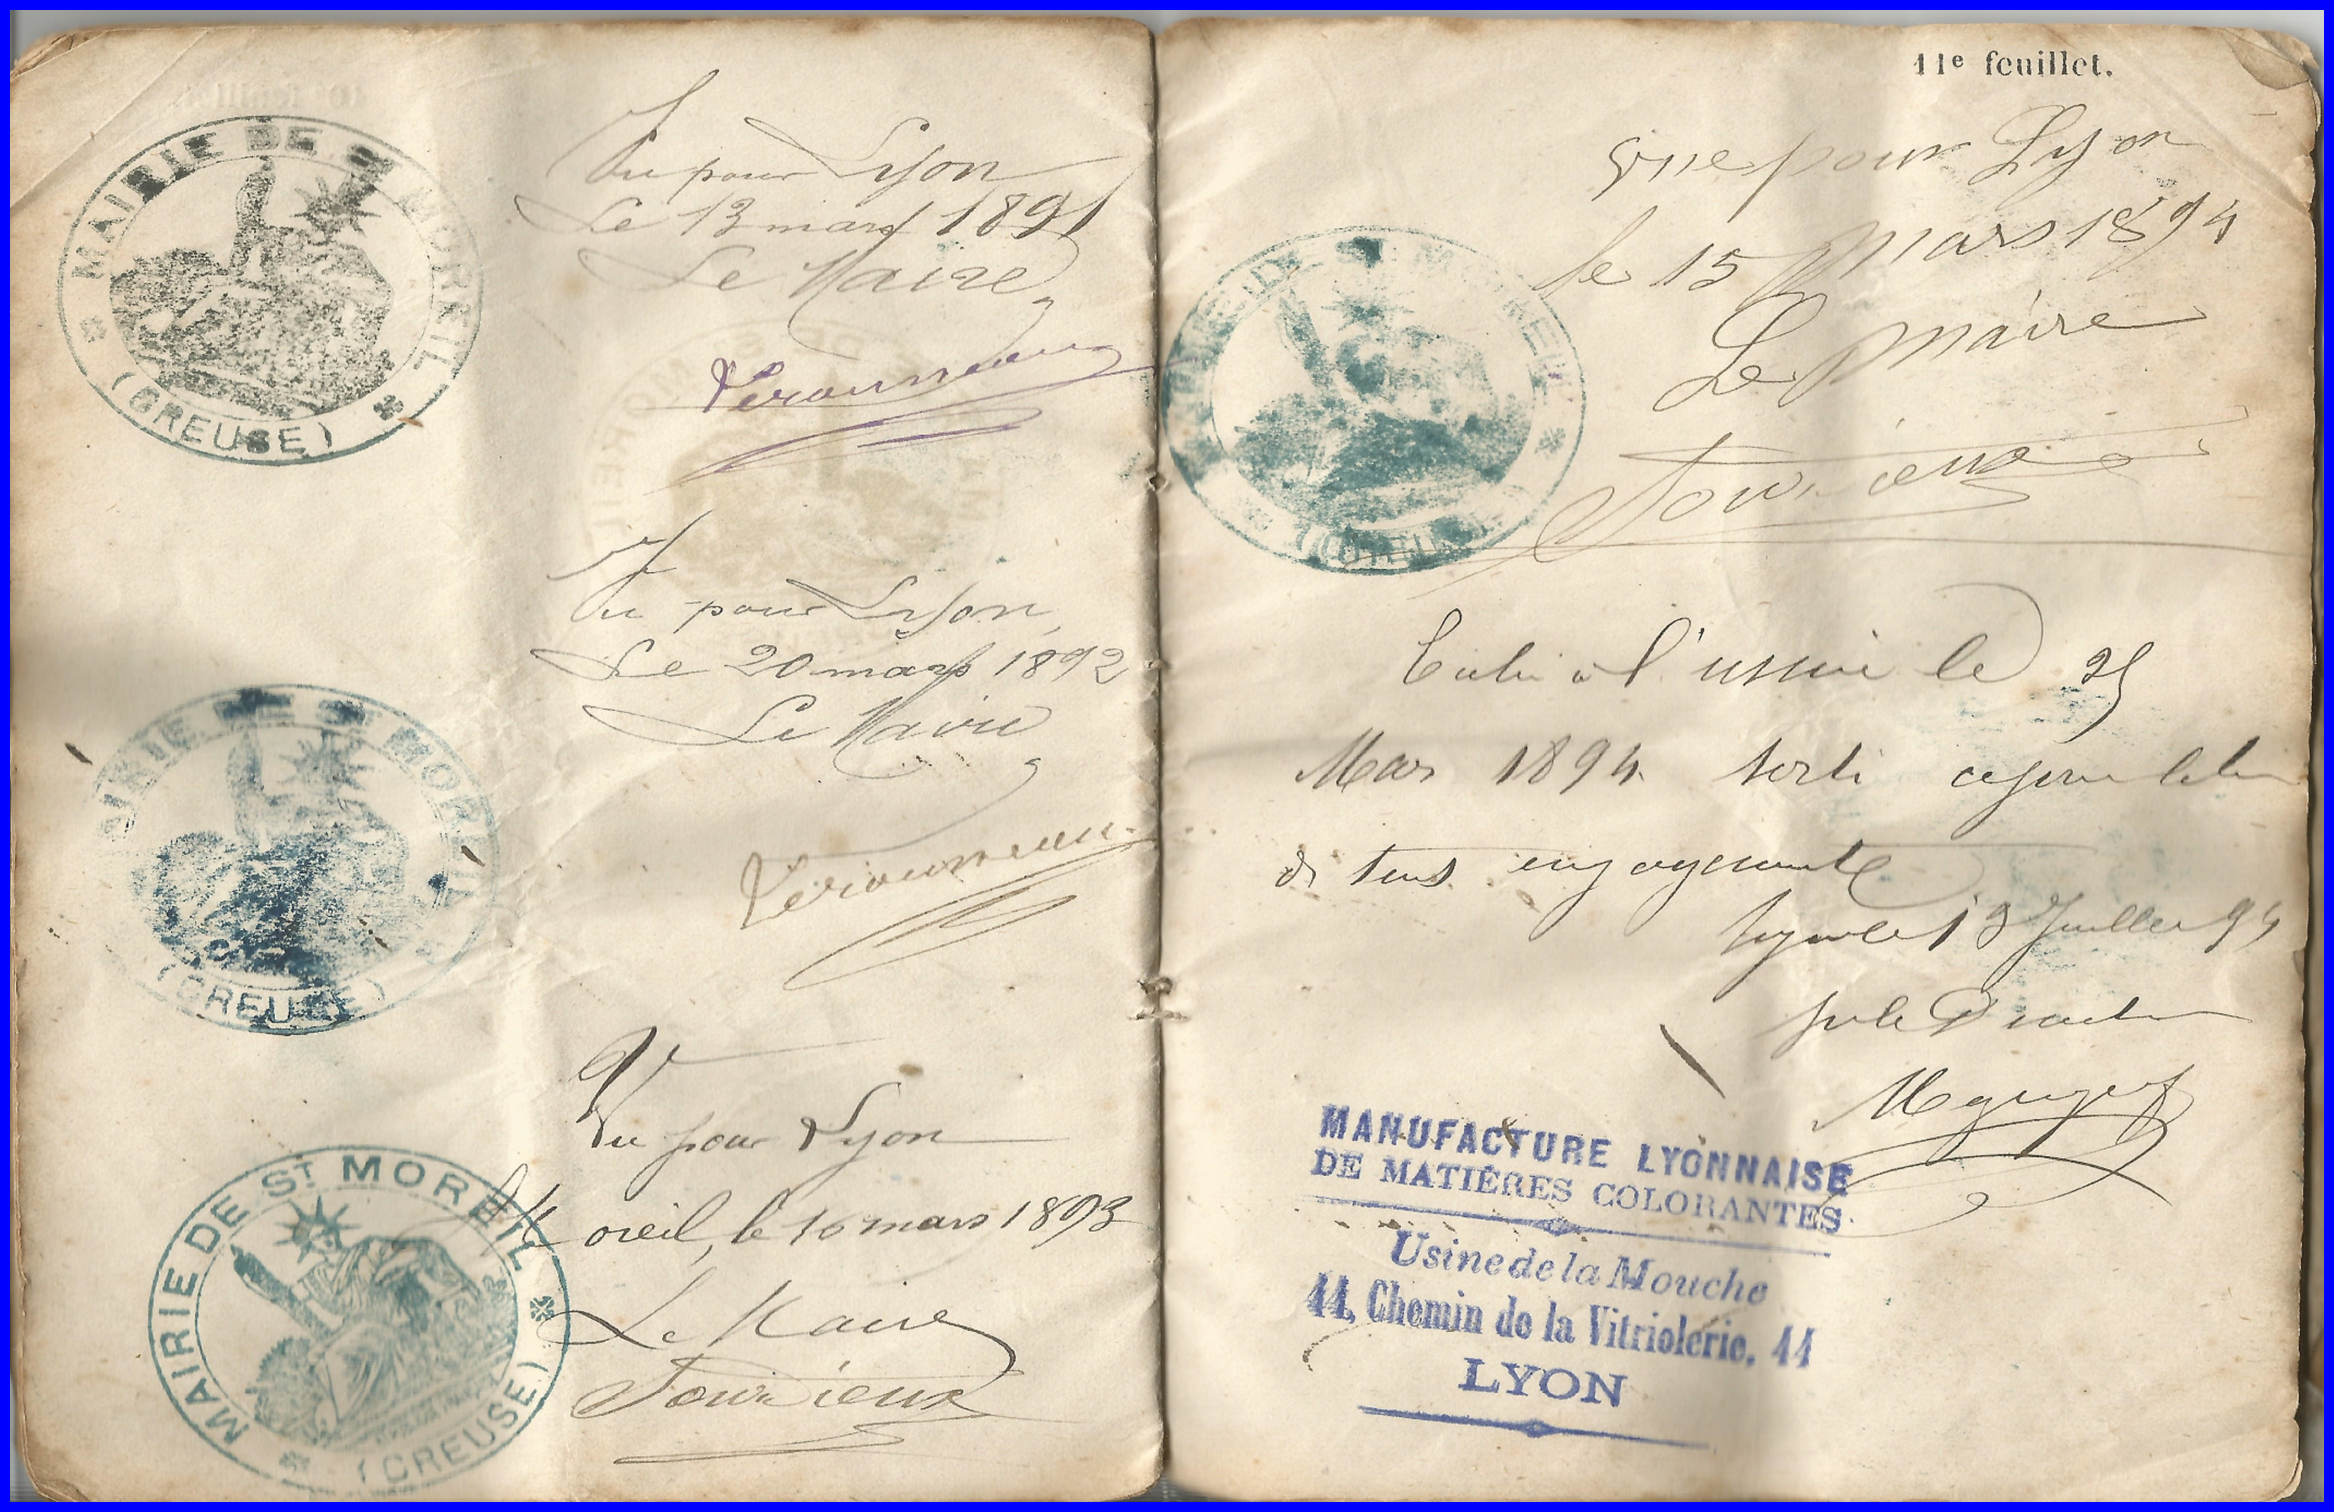 MAIRIE DE ST MOREIL
(CREUSE)
Vu pour Lyon
Le 13 mars 1891
Le Maire
MAIRIE DE ST MOREIL
(CREUSE)
Vu pour Lyon,
Le 20 mars 1892
Le Maire
MAIRIE DE ST MOREIL
(CREUSE)
Vu pour Lyon
Moreil, le 10 mars 1893
Le Maire
11e feuillet.
pour Lyon
le 15 Mars 1894
Le Maire
à l'usine le 25
Mars 1894 sorti ce jour
de tous engagements
Juillet 94
MANUFACTURE LYONNAISE
DE MATIÈRES COLORANTES
Usine de la Mouche
44, Chemin de la Vitriolerie, 44
LYON